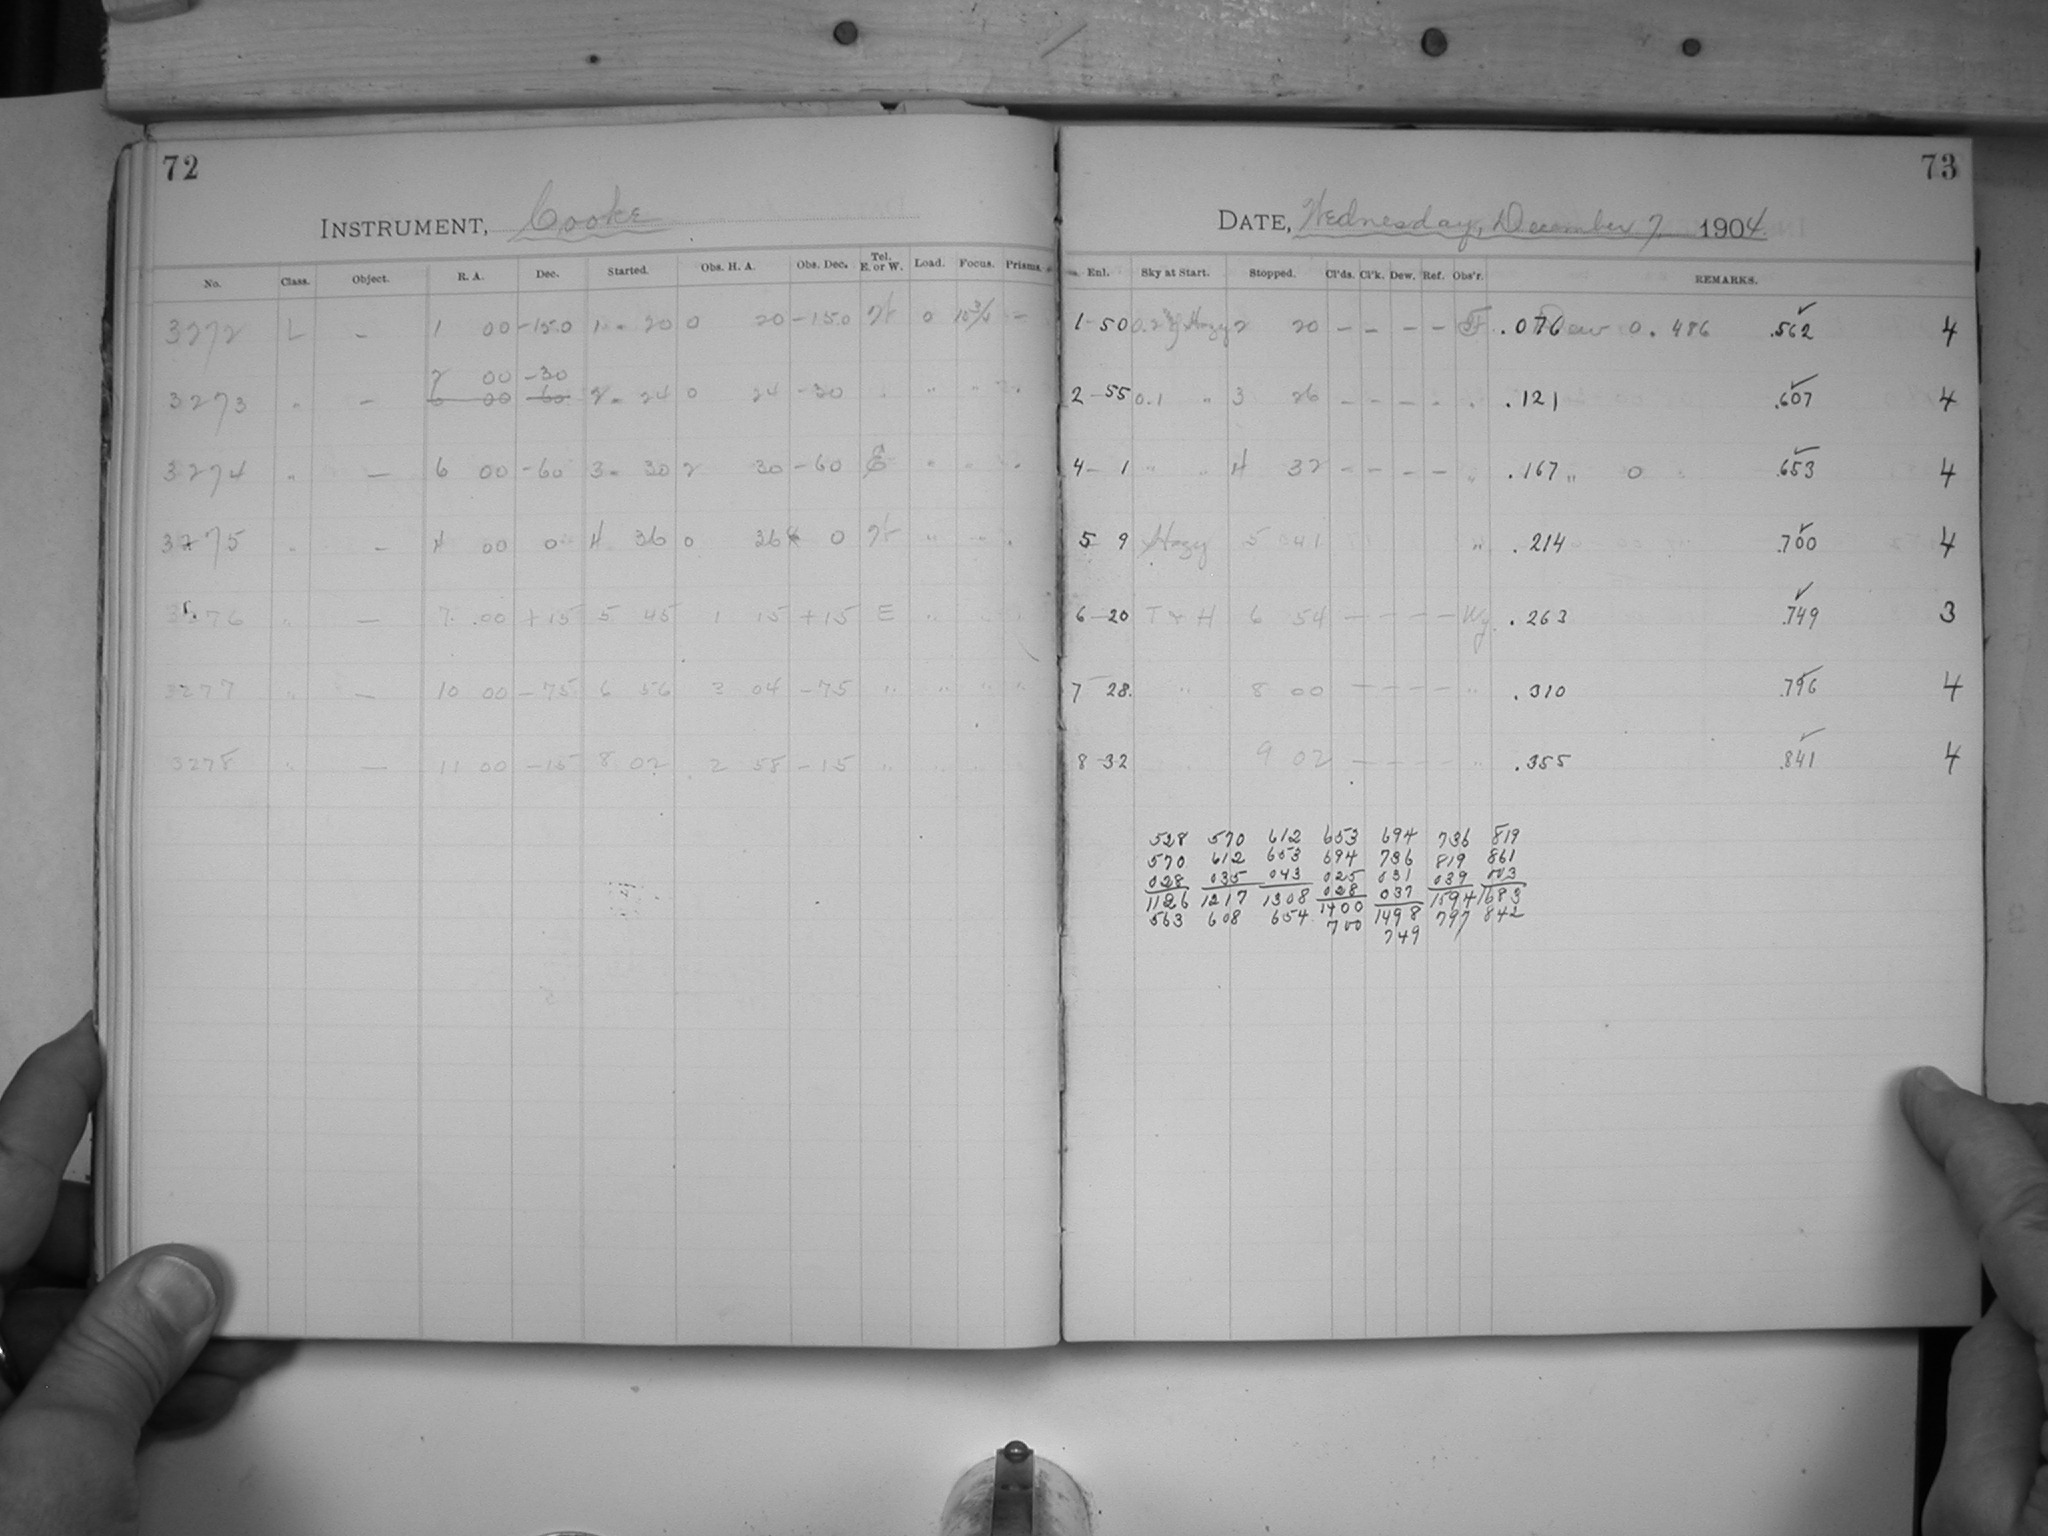 72
INSTRUMENT, Cooke
No. Class. Object. R. A. Dec. Started. Obs. H. A. Obs. Dec. Tel. E. or W. Load. Focus. Prisms.
3272 L – 1 00 -15.0 1 20 0 20 -15.0 W 0 10 3/4 –
2 00 -30
3273 " – 6 00 -60 2 24 0 24 -30 " " " "
3274 " – 6 00 -60 3 30 2 30 -60 E " " "
3275 " – 4 00 0 4 36 0 36 0 W " " "
3276 " – 7 00 +15 5 45 1 15 +15 E " " "
3277 " – 10 00 -75 6 56 3 04 -75 " " " "
3278 " – 11 00 -15 8 02 2 58 -15 " " "
73
DATE, Wednesday, December 7, 1904.
Enl. Sky at Start. Stopped. Cl'ds. Cl'k. Dew. Ref. Obs'r. REMARKS.
1-50 0.2 Hazy 2 20 – – – – .076 Dew 0. 486 .562 4
2-55 0.1 " 3 26 – – – .121 .607 4
4- 1 " " 4 32 – – – – " .167 " 0 .653 4
5 9 Hazy 5 41 " .214 .700 4
6-20 T & H 6 54 – – – – Wy. .263 .749 3
7 28. " 8 00 – – – – " .310 .796 4
8-32 9 02 – – – – " .355 .841 4
528 570 612 653 694 736 819
570 612 653 694 736 819 861
028 035 043 025 031 039 003
1126 1217 1308 028 037 1594 1683
563 608 654 1400 1498 797 842
700 749